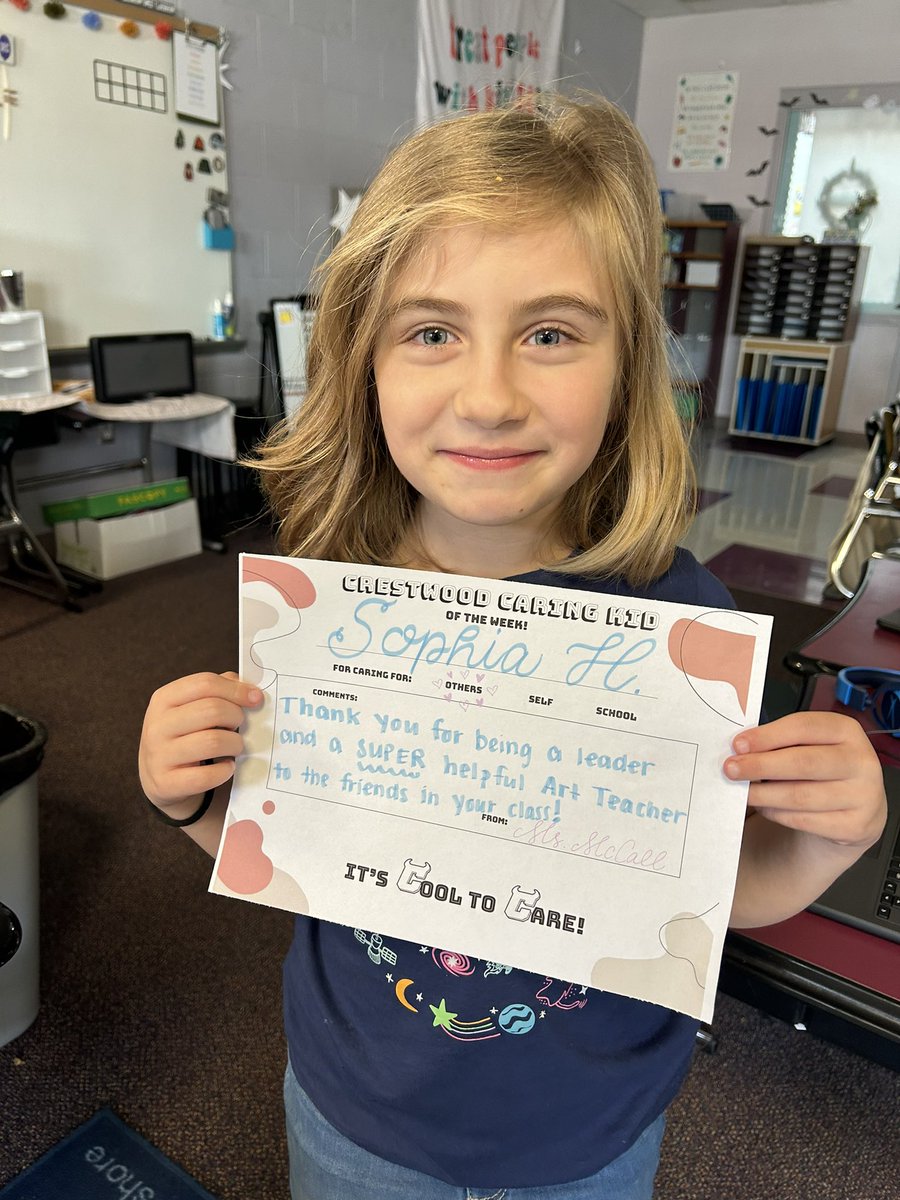 treat people
with
CRESTWOOD CARING KID
OF THE WEEK!
Sophia H.
FOR CARING FOR: OTHERS SELF SCHOOL
COMMENTS:
Thank you for being a leader
and a SUPER helpful Art Teacher
to the friends in your class!
FROM: Ms. McCall
IT'S COOL TO CARE!
shore